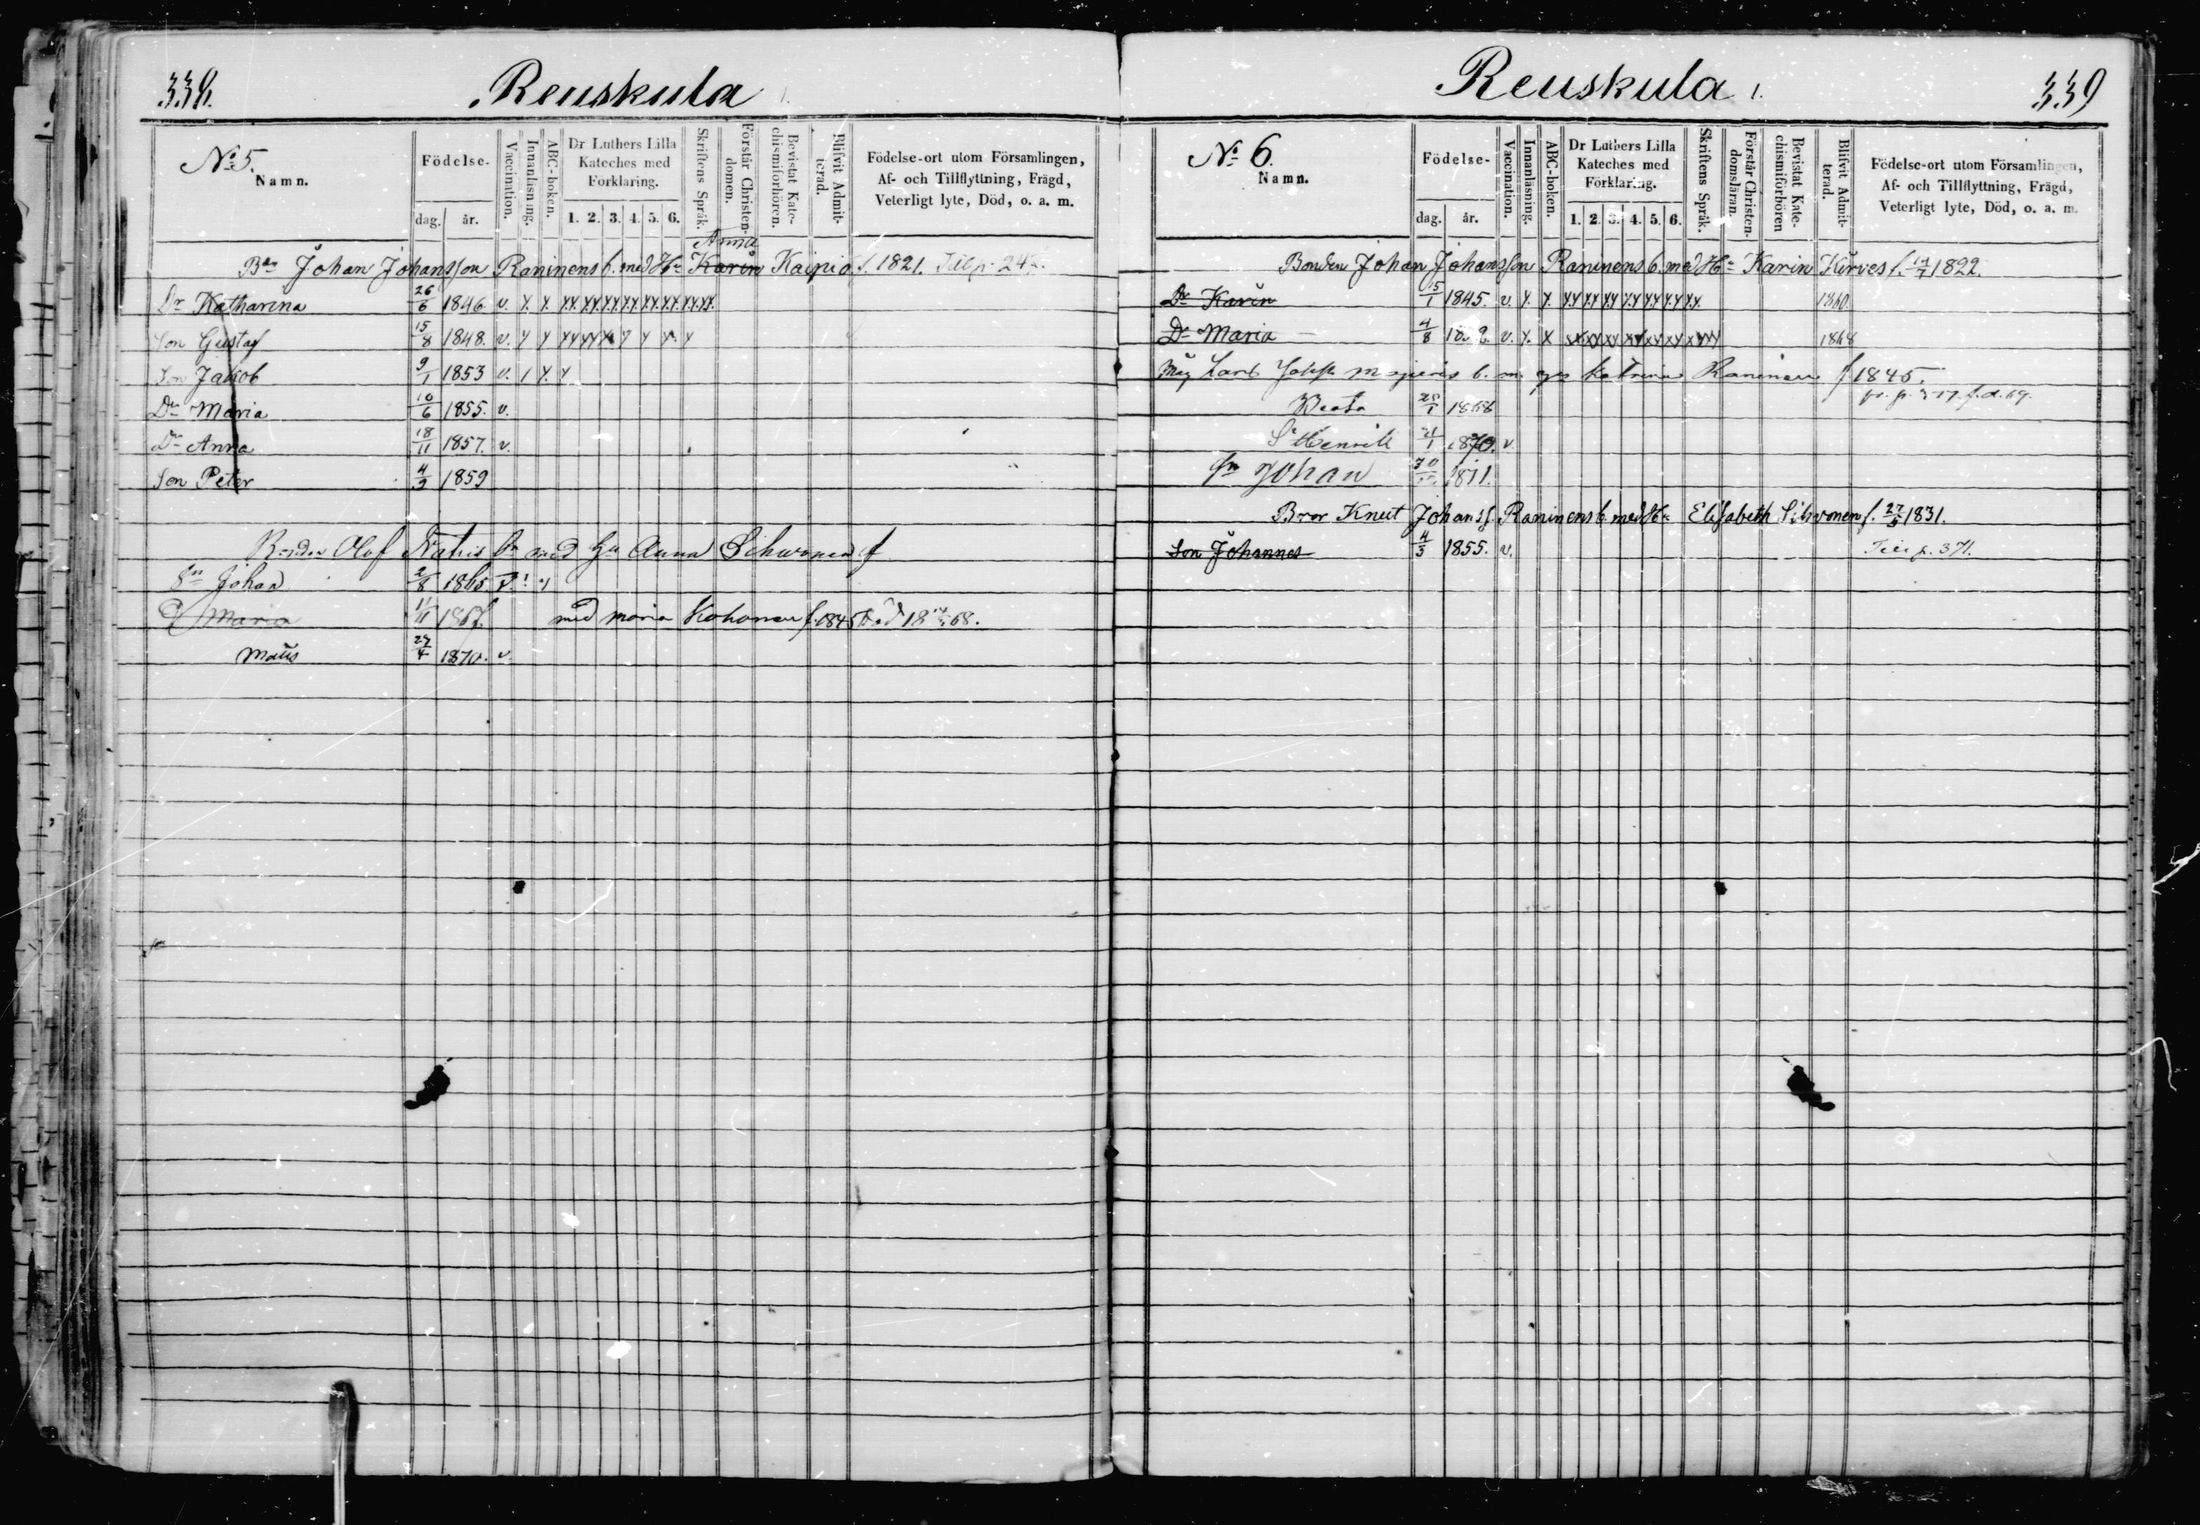 338.
Reuskula
No 5.
Namn.
Födelse-
dag. år.
Vaccination.
Innanläsning.
ABC-boken.
Dr Luthers Lilla Kateches med Förklaring.
1. 2. 3. 4. 5. 6.
Skriftens Språk.
Förstår Christen-domen.
Bevistat Kate-chismiförhören.
Blifvit Admit-terad.
Födelse-ort utom Församlingen,
Af- och Tillflyttning, Frägd,
Veterligt lyte, Död, o. a. m.
Anna
Bon Johan Johansson Raninens b. med Hu Karin Kainio f. 1821.
Dr Katharina 26/6 1846. v. x x xx xx xx xx xx xx xx xx
Son Gustaf 15/8 1848. v. x x xx xx x x x x x
Son Jakob 9/1 1853 v. / x x
Dr Maria 10/6 1855. v.
Dr Anna 18/11 1857. v.
Son Peter 4/9 1859
Bonden Olof bn med Hu Anna Sihvonen f
Sn Johan 2/8 1865
D Maria 11/11 1867. med Maria Kohonen f. 1845
Mats 27/4 1870. v.
Reuskula 1.
339
No 6.
Namn.
Födelse-
dag. år.
Vaccination.
Innanläsning.
ABC-boken.
Dr Luthers Lilla Kateches med Förklaring.
1. 2. 3. 4. 5. 6.
Skriftens Språk.
Förstår Christen-domsläran.
Bevistat Kate-chismiförhören
Blifvit Admit-terad.
Födelse-ort utom Församlingen,
Af- och Tillflyttning, Frägd,
Veterligt lyte, Död, o. a. m.
Bonden Johan Johansson Raninens b. med Hu Karin Kirves f. 1822.
Dr Karin 15/1 1845. v. x. x xx xx xx xx xx xx xx 1860.
Dr Maria 4/8 v. x. x xx xx xx xx xx xx xx 1868
Måg Lars b. m. Katrina Raninen f 1845.
Beata 28/1 1868
S Henrik 21/1 1870. v
Sn Johan 1871.
Bror Knut Johanss. Raninens b. med Hu Elisabeth Sihvonen f. 27/5 1831.
Son Johannes 4/3 1855. v. p. 371.